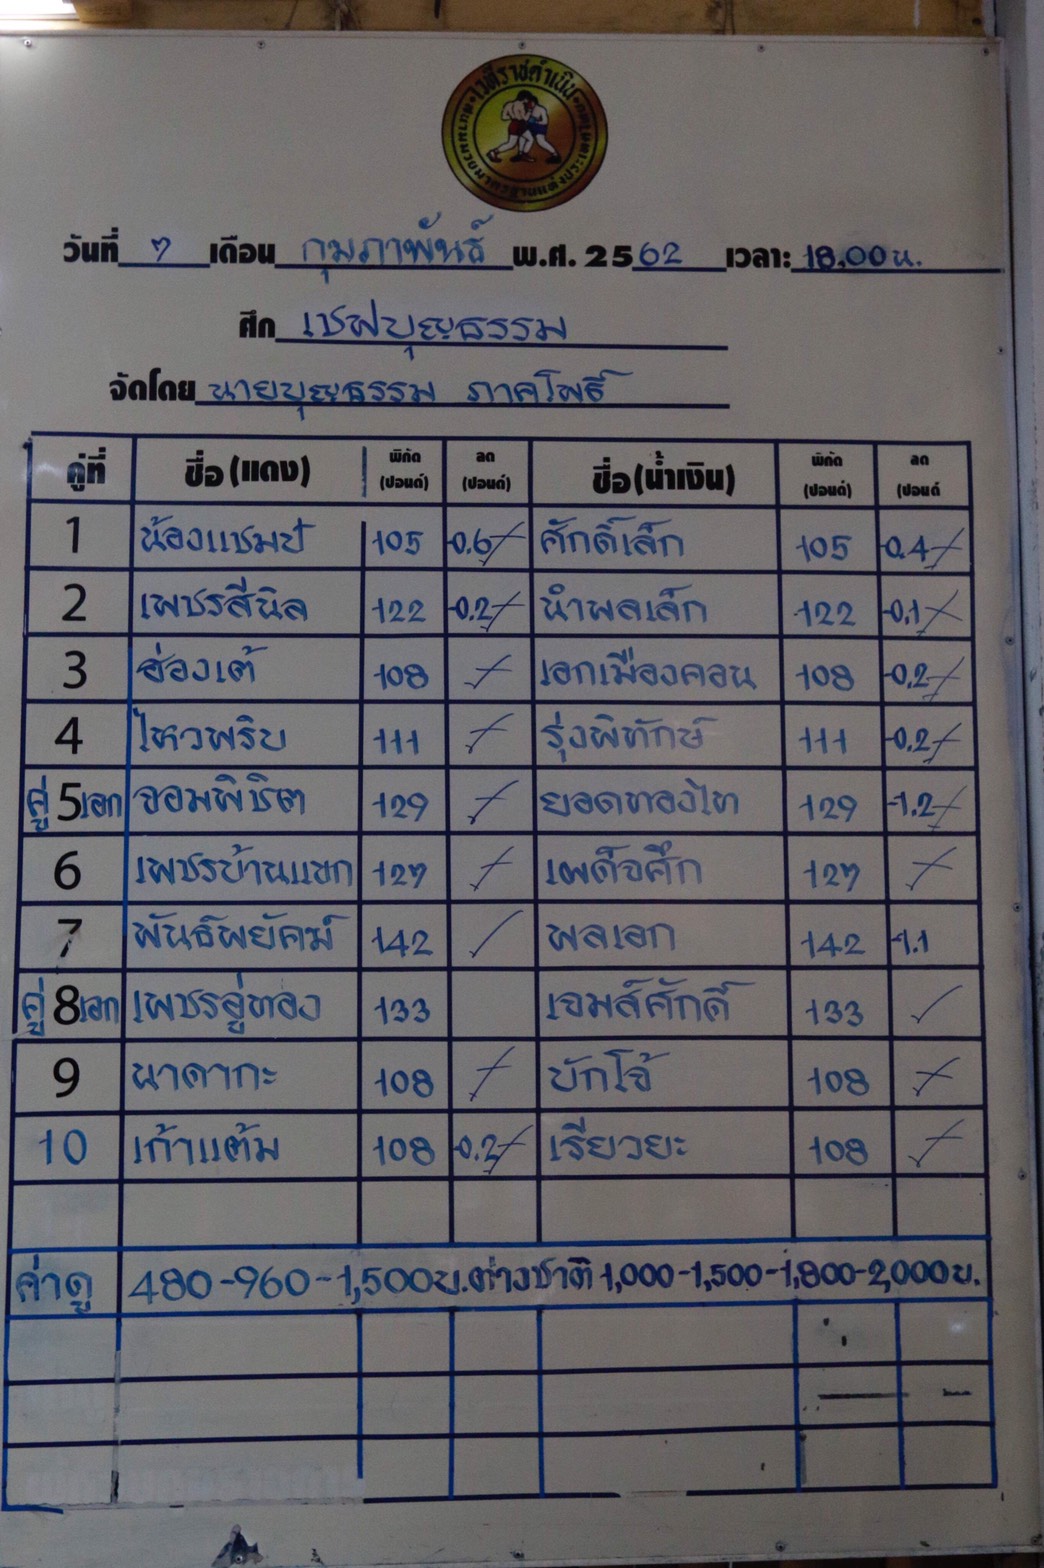 เวทีราชดำเนิน
วันที่ ๗ เดือน กุมภาพันธ์ พ.ศ. 2562 เวลา: 18.00 น.
ศึก เชฟบุญธรรม
จัดโดย นายบุญธรรม ภาคโพธิ์
คู่ที่ ชื่อ (แดง) พิกัด (ปอนด์) ลด (ปอนด์) ชื่อ (น้ำเงิน) พิกัด (ปอนด์) ลด (ปอนด์
1 น้องแชมป์ 105 -0.6 ศักดิ์เล็ก 105 -0.4
2 เพชรสีนิล 122 -0.2 นำพลเล็ก 122 -0.1
3 ฮ่องเต้ 108 เอกเมืองคอน 108 -0.2
4 ไหวพริบ 111 รุ่งพิทักษ์ 111 -0.2
คู่ 5 เอก จอมพิชิต 129 ยอดทองไท 129 -1.2
6 เพชรบ้านแขก 12๗ เผด็จศึก 12๗
7 พันธ์พยัคฆ์ 142 พลเอก 142 -1.1
คู่ 8 เอก เพชรอู่ทอง 133 เจมส์ศักดิ์ 133
9 นาดากะ 108 บักโจ้ 108
10 เก้าแต้ม 108 -0.2 เรียวยะ 108
ค่าดู 480-960-1,500บ. ต่างชาติ 1,000-1,500-1,800-2,000 บ.